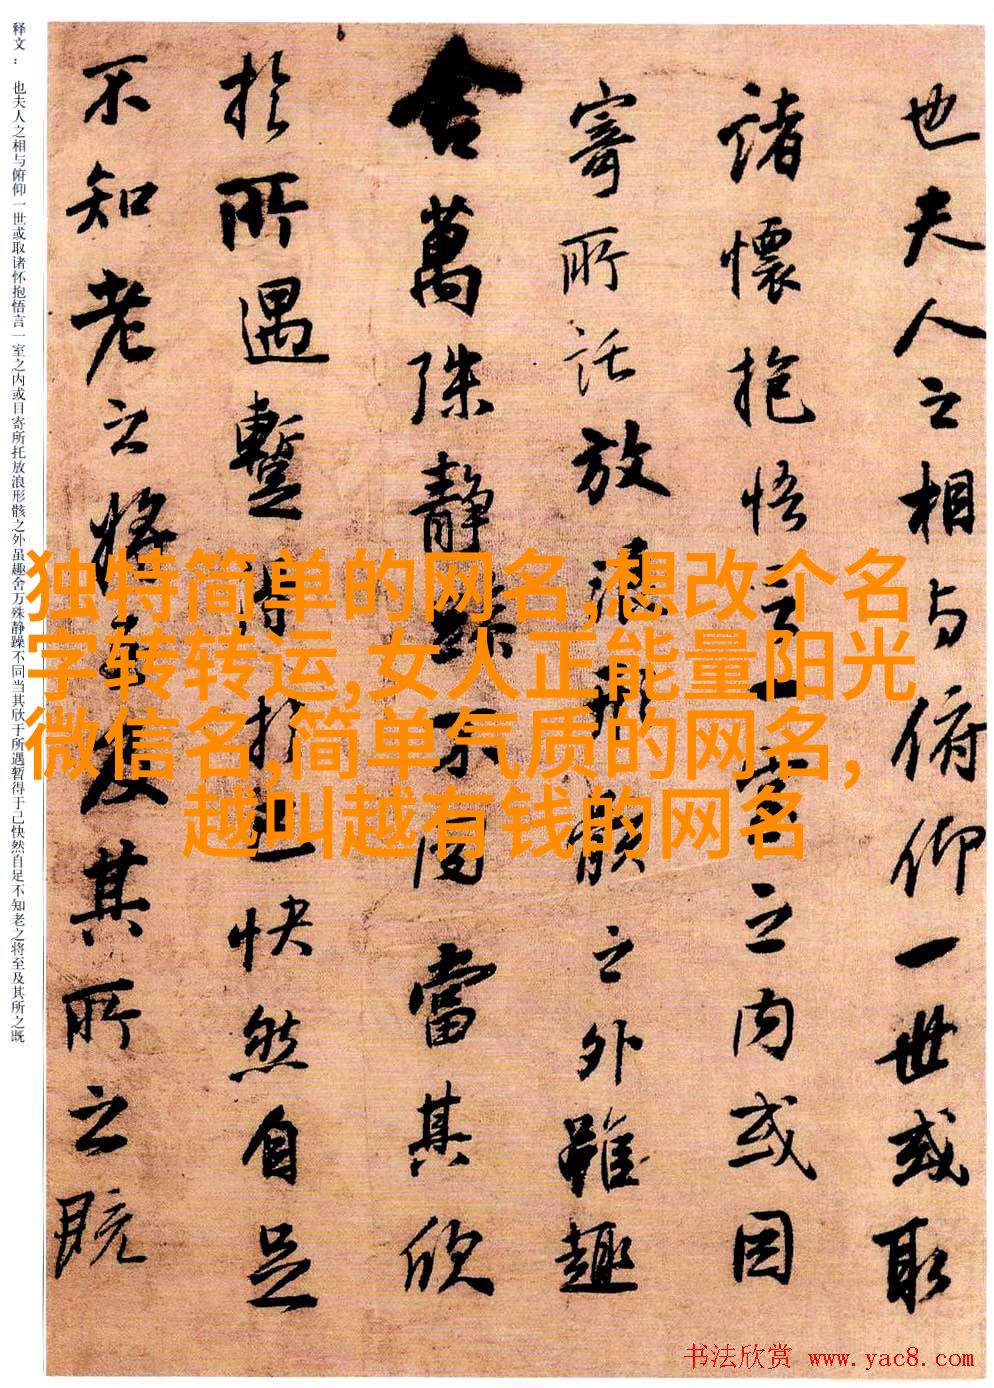 也夫人之相与俯仰一世或取
諸懷抱悟言一室之内或因
寄所託放浪形骸之外雖趣
舍萬殊静躁不同當其欣
於所遇蹔得於己快然自足
不知老之將至及其所之既
释文: 也夫人之相与俯仰一世或取诸怀抱悟言一室之内或目寄所托放浪形骸之外虽趣舍万殊静躁不同当其欣于所遇暂得于己快然自足不知老之将至及其所之既
独特简单的网名,想改个名
字转转运,女人正能量阳光
微信名,简单气质的网名,
越叫越有钱的网名
书法欣赏 www.yac8.com